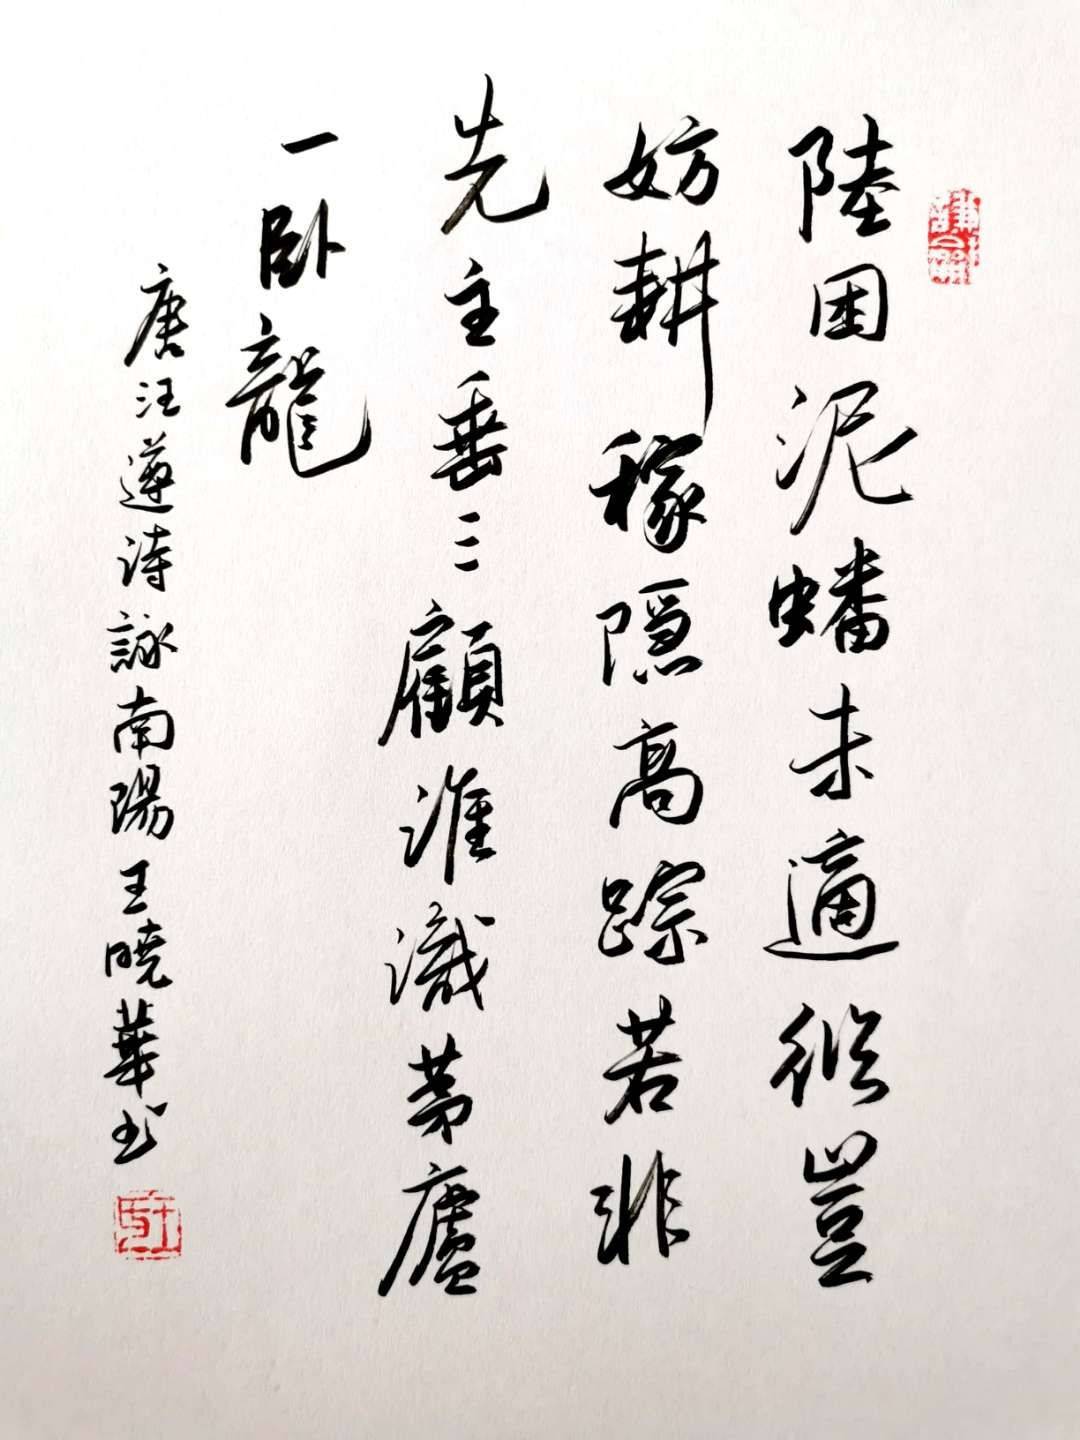 陸困泥蟠未適從豈
妨耕稼隐高踪若非
先主垂三顧誰識茅廬
一卧龍
唐汪遵詩詠南陽王曉華书